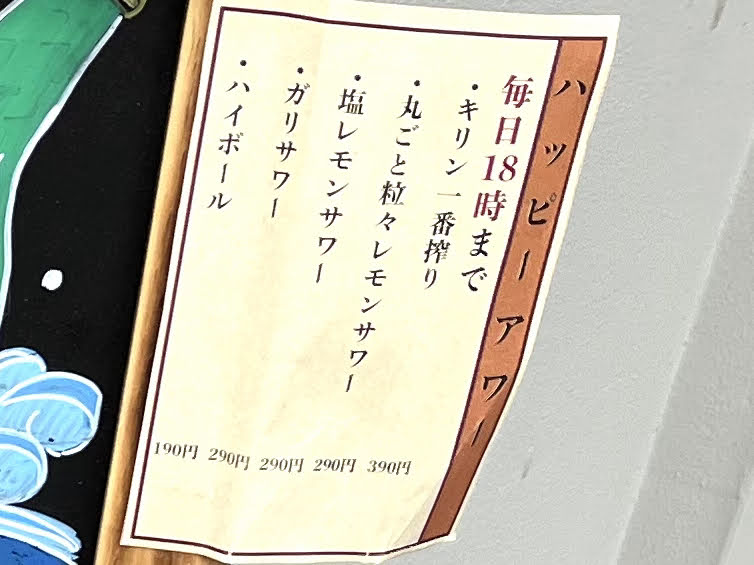 ハッピーアワー
毎日18時まで
・キリン一番搾り 390円
・丸ごと粒々レモンサワー 290円
・塩レモンサワー 290円
・ガリサワー 290円
・ハイボール 190円